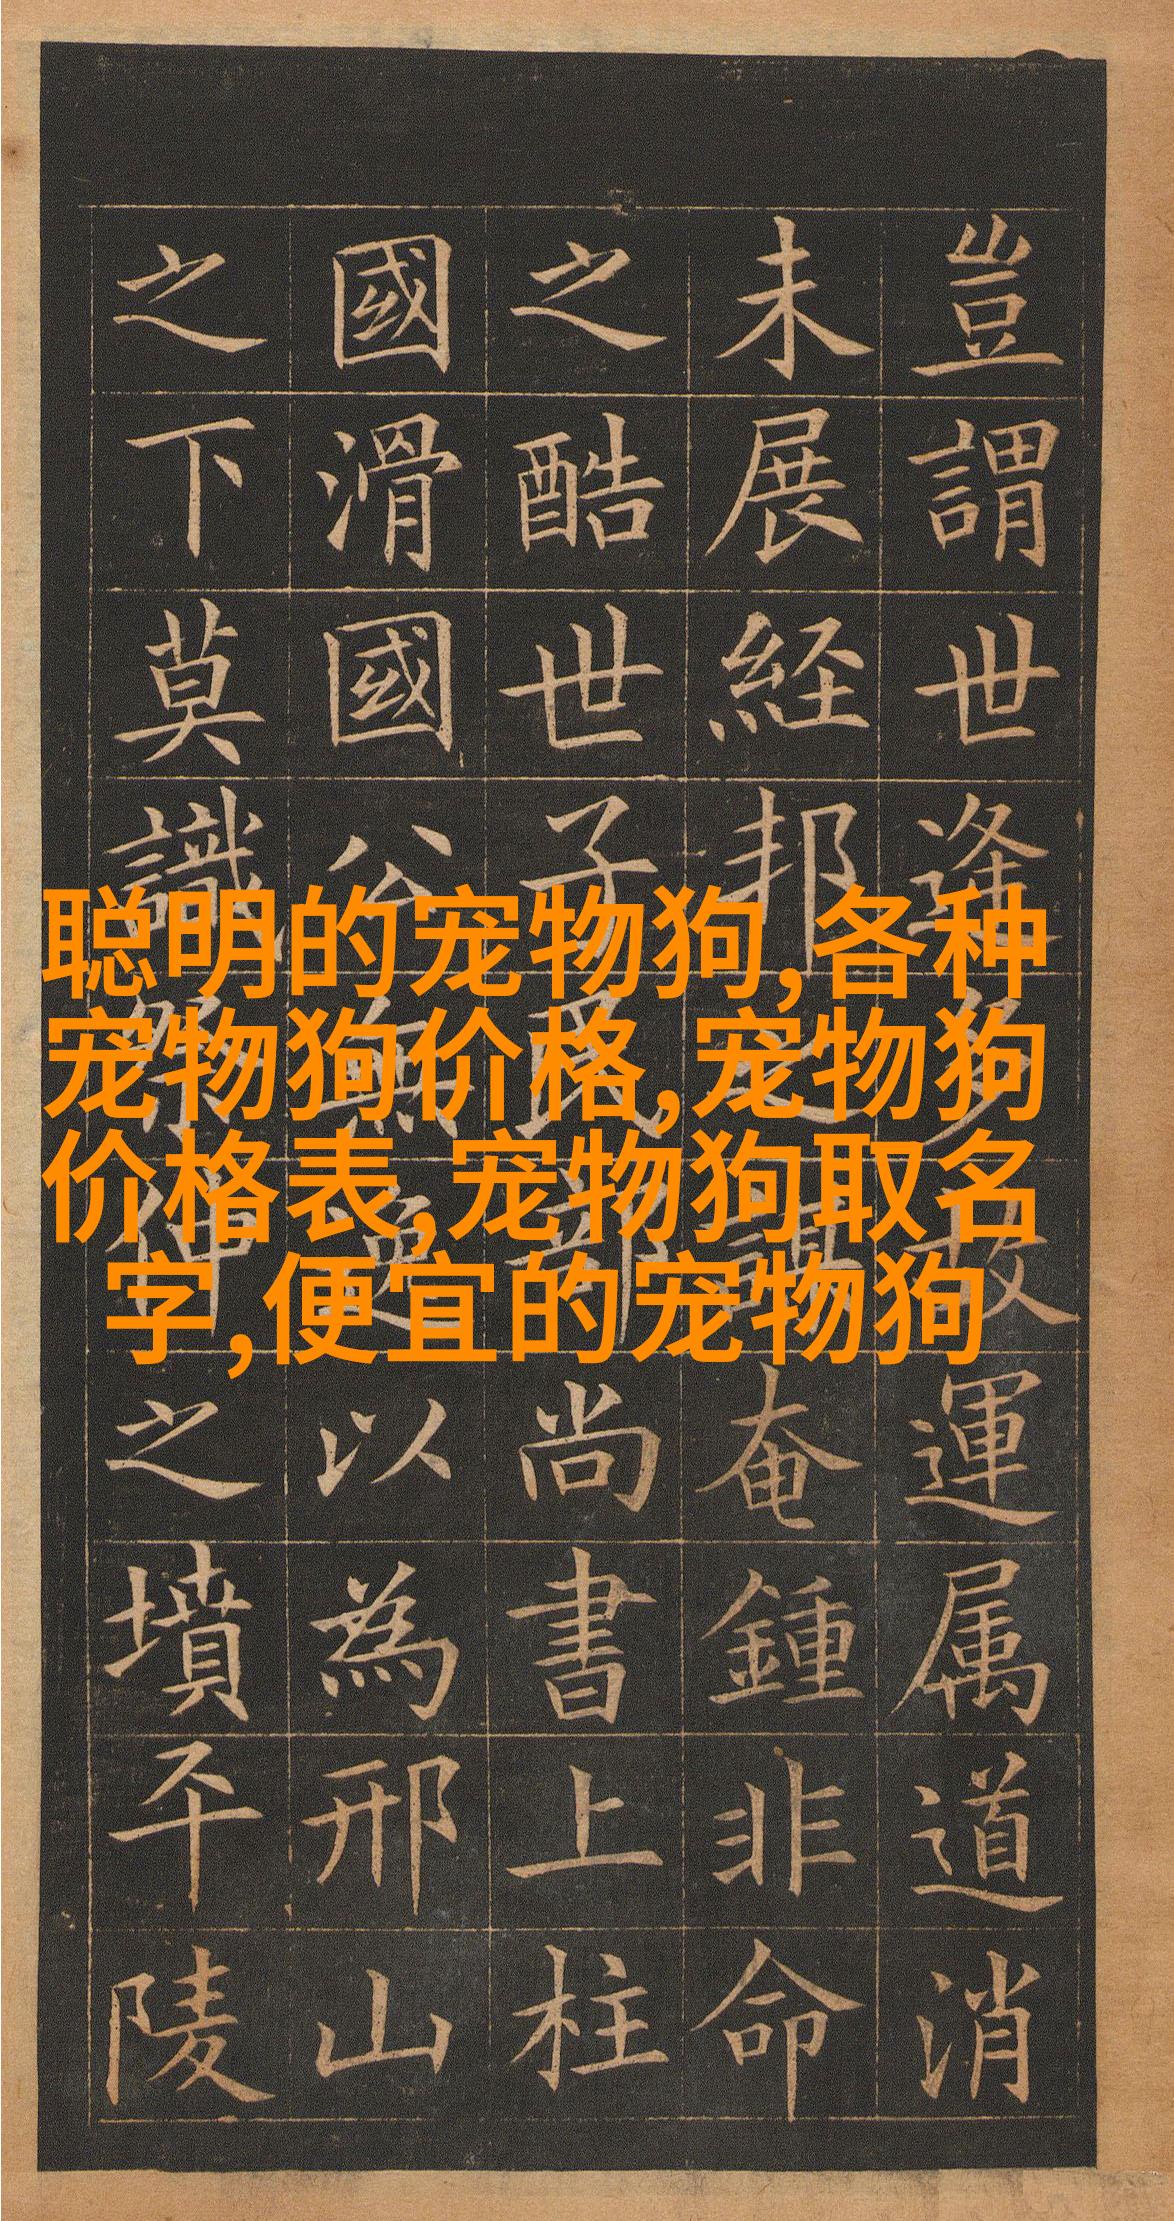 豈謂世逢多故運属道消
未展経邦之謀奄鍾非命
之酷世子民部尚書上柱
國滑國公無逸以為邢山
之下莫識祭仲之墳平陵
聪明的宠物狗,各种
宠物狗价格,宠物狗
价格表,宠物狗取名
字,便宜的宠物狗